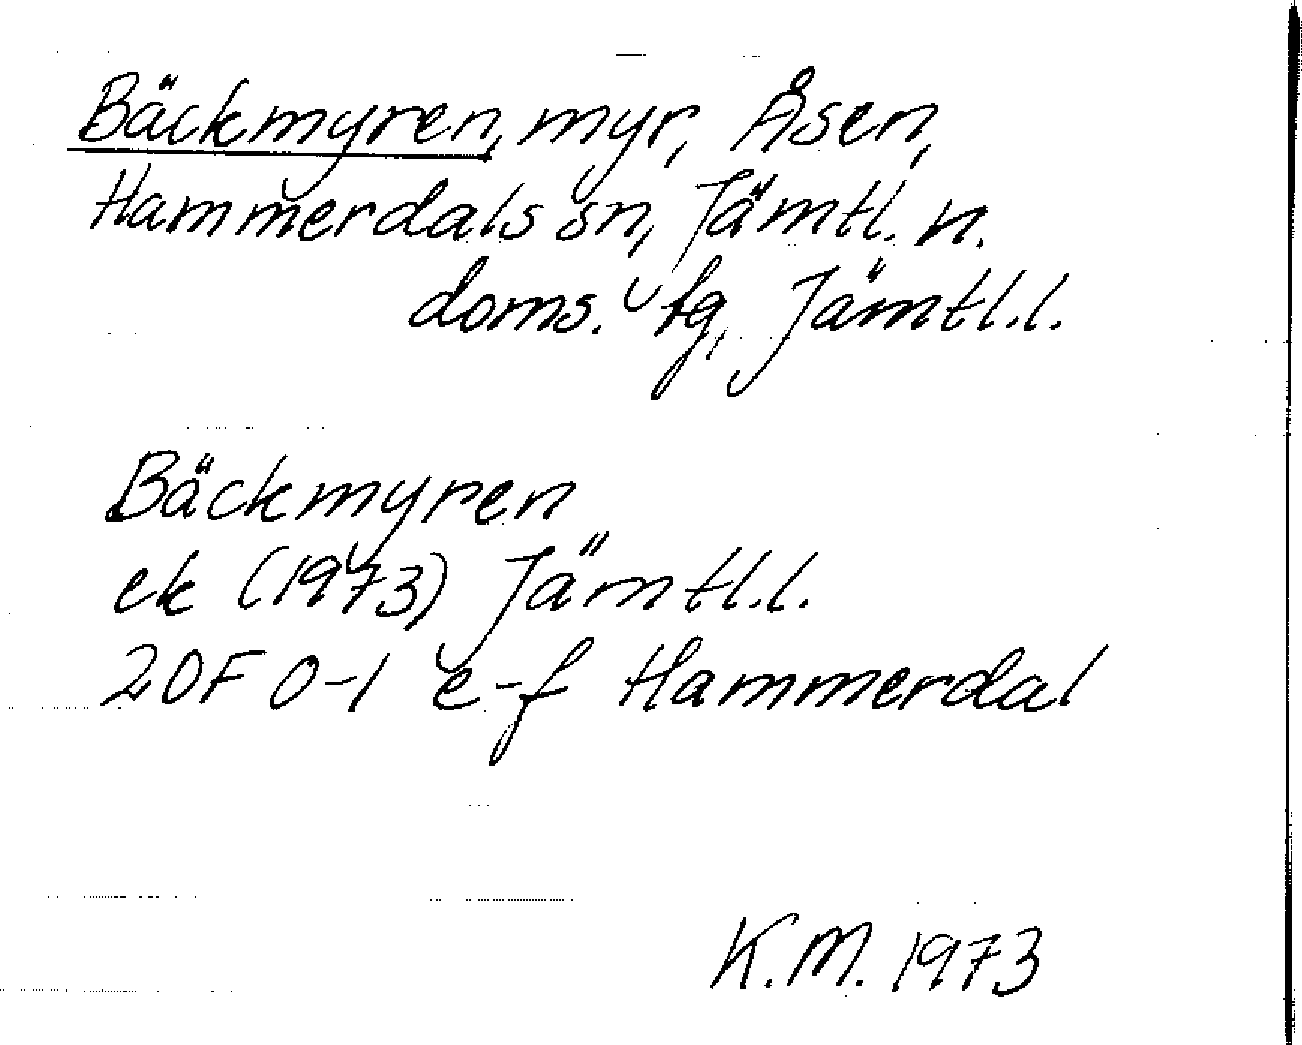 Bäckmyren, myr, Åsen,
Hammerdals sn, Jämtl. n.
doms. tg, Jämtl.l.
Bäckmyren
ek (1973) Jämtl.l.
20F 0-1 e-f Hammerdal
K.M. 1973